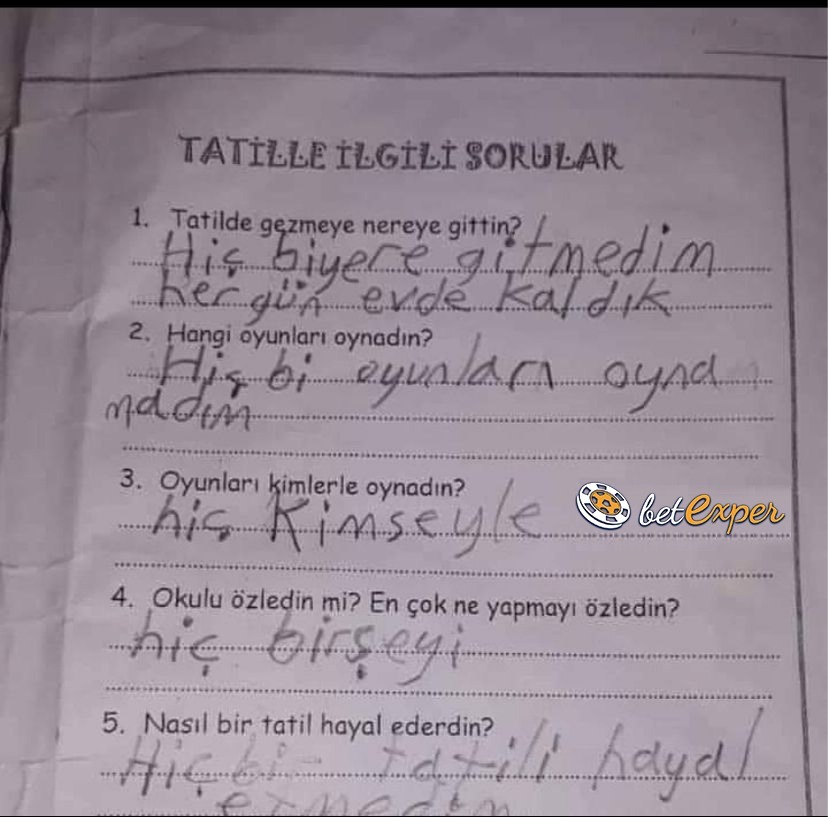 TATİLLE İLGİLİ SORULAR
1. Tatilde gezmeye nereye gittin?
Hiç biyere gitmedim
her gün evde kaldık
2. Hangi oyunları oynadın?
Hiç bi oyunları oyna
madım
3. Oyunları kimlerle oynadın?
hiç kimseyle
betexper
4. Okulu özledin mi? En çok ne yapmayı özledin?
hiç birşeyi
5. Nasıl bir tatil hayal ederdin?
Hiç bi tatili hayal
etmedim